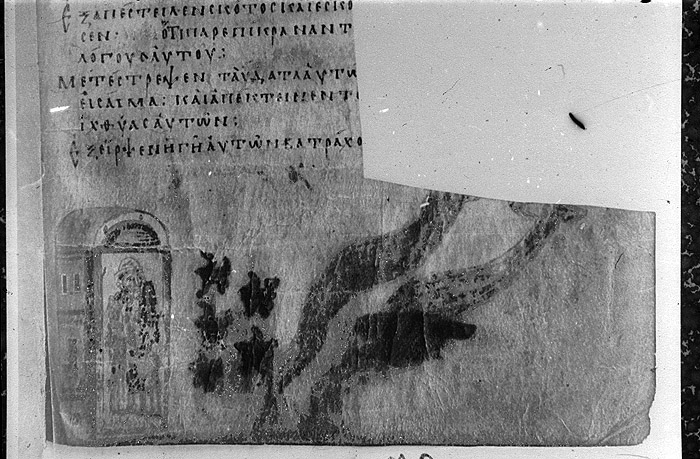 ΕΞΑΠΕСΤΕΙΛΕΝ СΚΟΤΟС ΚΑΙ ΕСΚΟ
СΕΝ· ΟΤΙ ΠΑΡΕΠΙΚΡΑΝΑΝ Τ
ΛΟΓΟΥС ΑΥΤΟΥ:
ΜΕΤΕСΤΡΕΨΕΝ ΤΑ ΥΔΑΤΑ ΑΥΤΩ
ΕΙС ΑΙΜΑ: ΚΑΙ ΑΠΕΚΤΕΙΝΕΝ Τ
ΙΧΘΥΑС ΑΥΤΩΝ:
ΕΞΕΙΡΨΕΝ Η ΓΗ ΑΥΤΩΝ ΒΑΤΡΑΧΟ